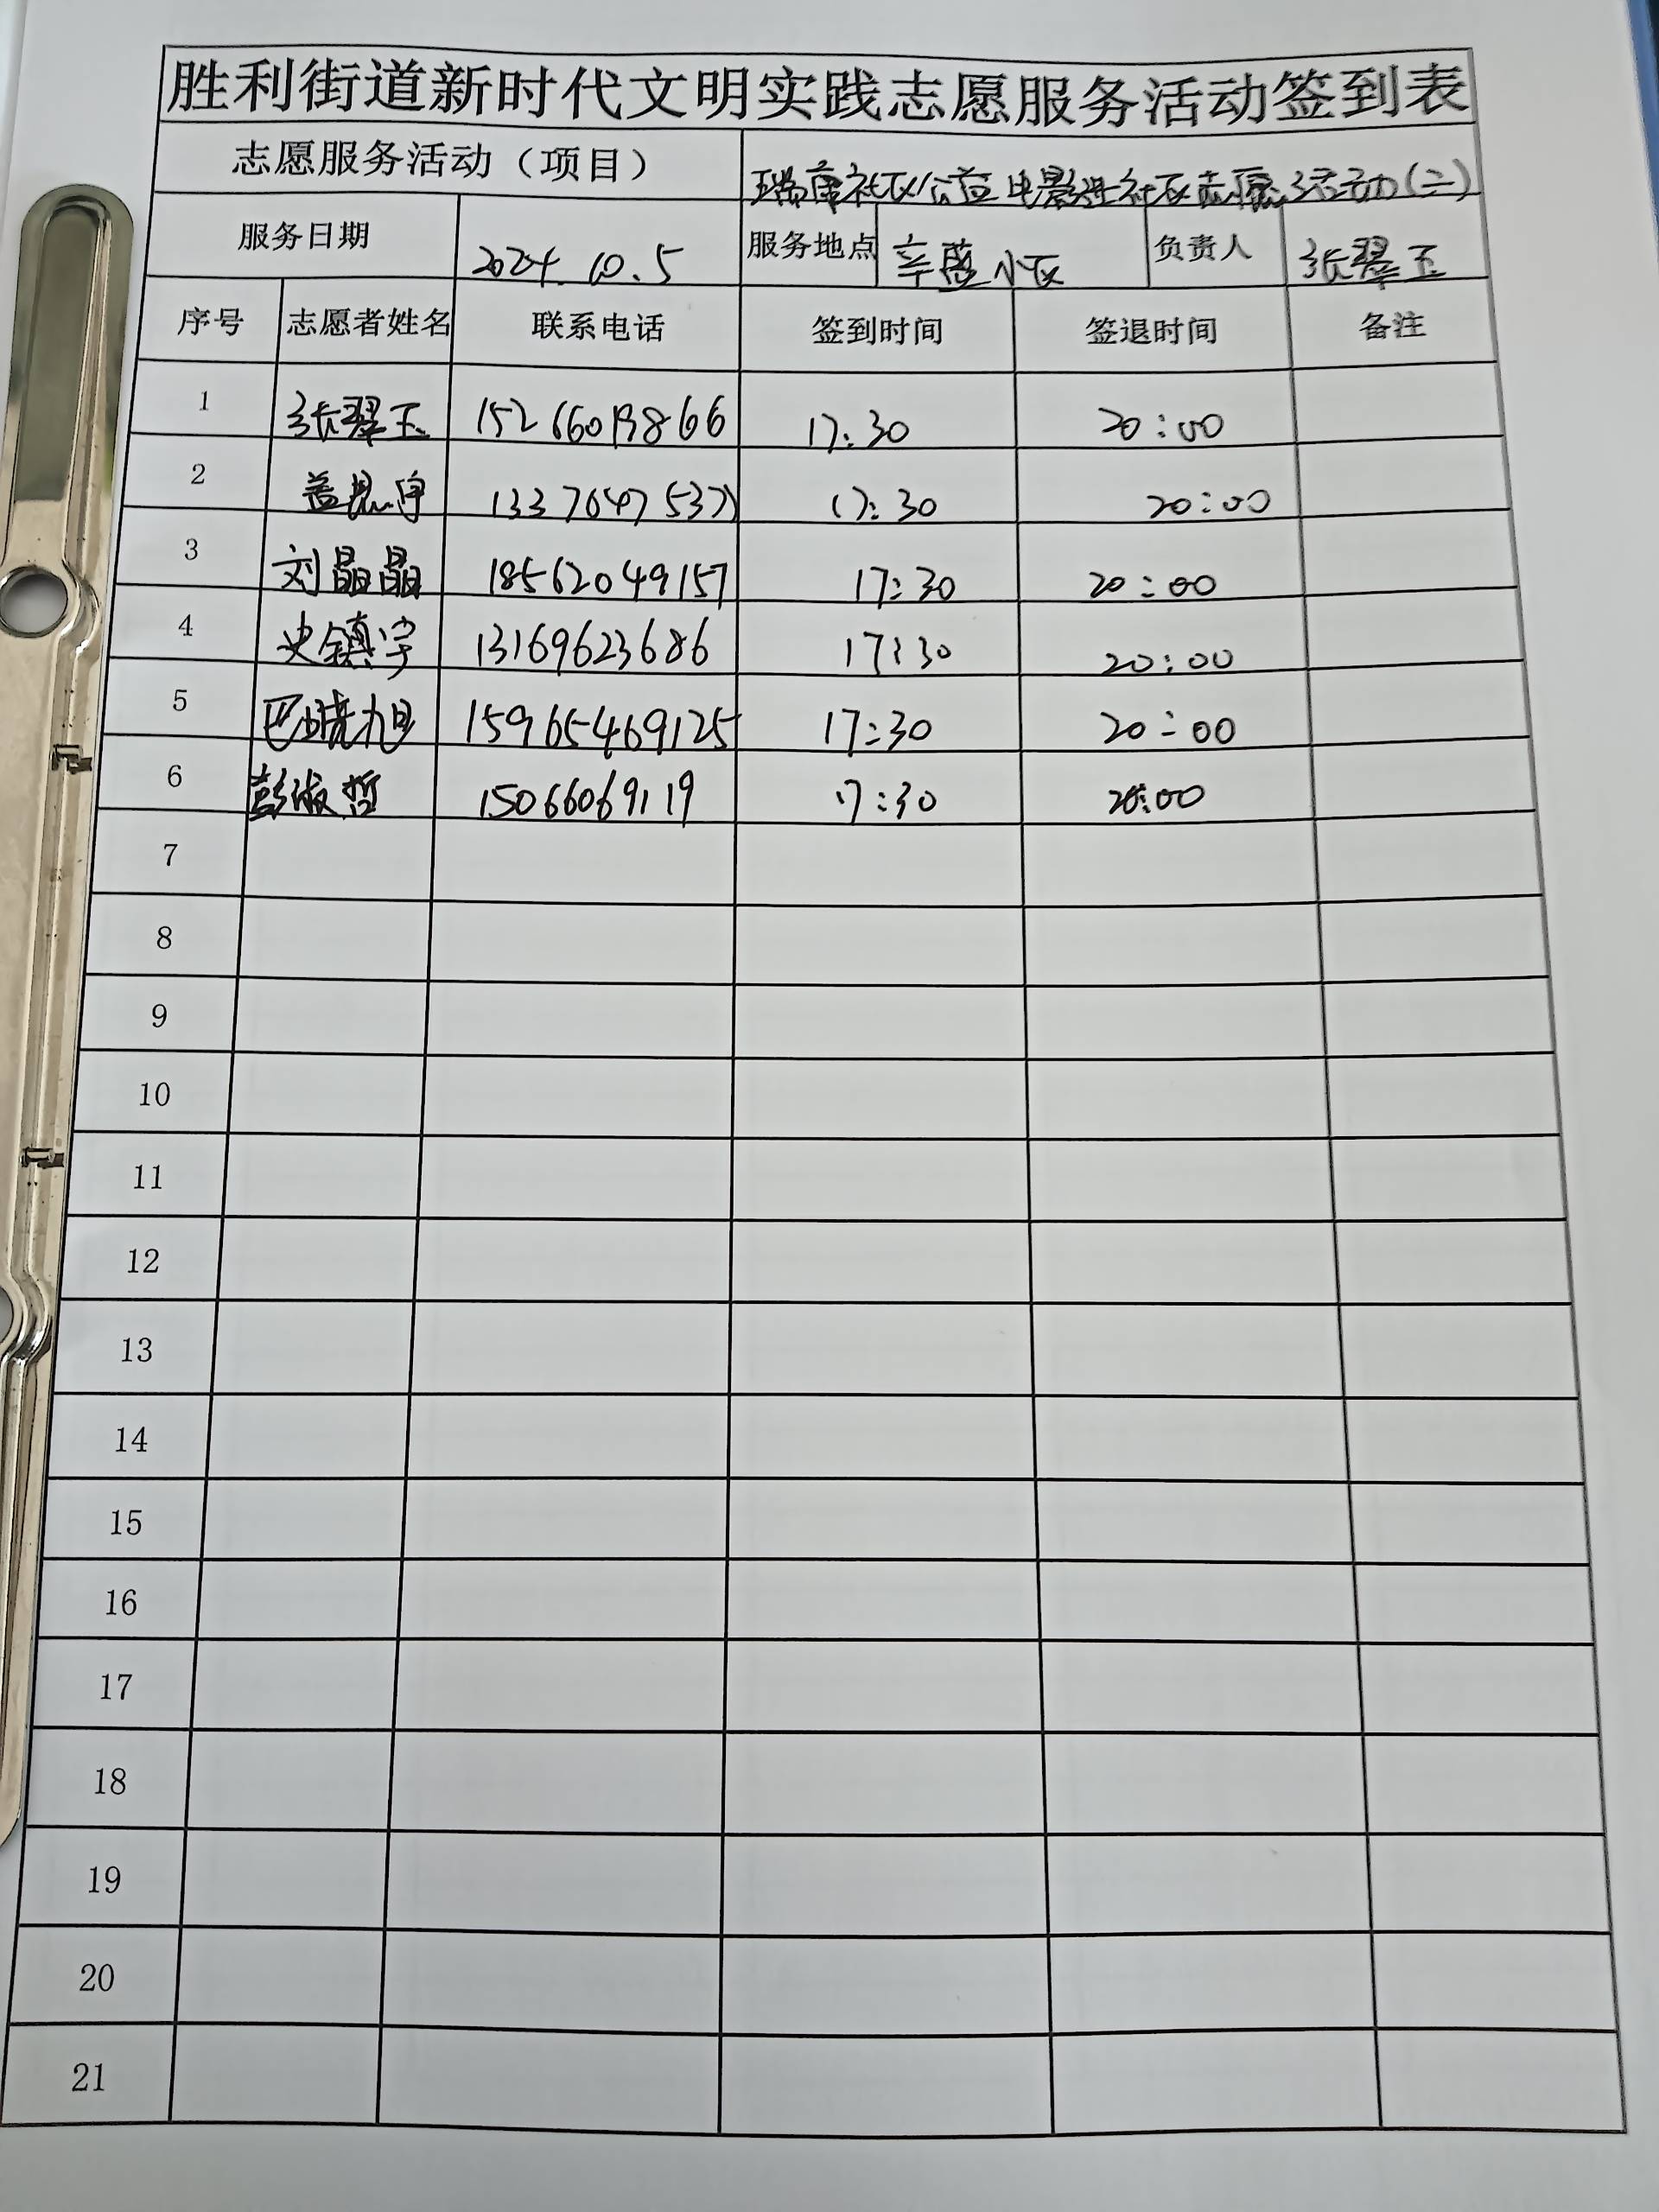 胜利街道新时代文明实践志愿服务活动签到表
志愿服务活动（项目） 瑞康社区公益电影进社区志愿活动(二)
服务日期 2024.10.5 服务地点 辛盛小区 负责人 张翠玉
序号 志愿者姓名 联系电话 签到时间 签退时间 备注
1 张翠玉 17:30 20:00
2 17:30 20:00
3 刘晶晶 18562049157 17:30 20:00
4 史镇宇 13169623686 17:30 20:00
5 巴晓旭 15965469125 17:30 20:00
6 彭淑哲 15066069119 17:30 20:00
7
8
9
10
11
12
13
14
15
16
17
18
19
20
21